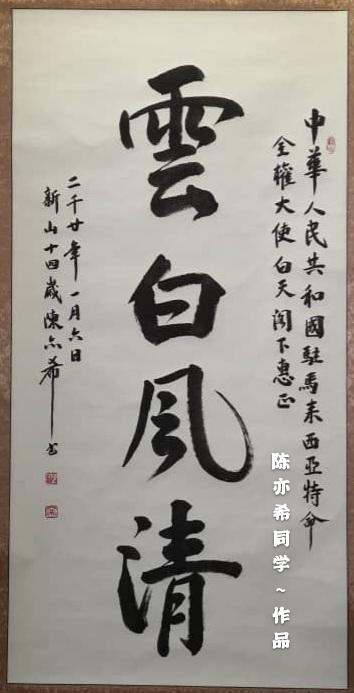 中華人民共和國駐馬来西亞特命
全權大使白天閣下惠正
雲白風清
二千廿年一月六日
新山十四歲陳亦希书
陈亦希同学~作品